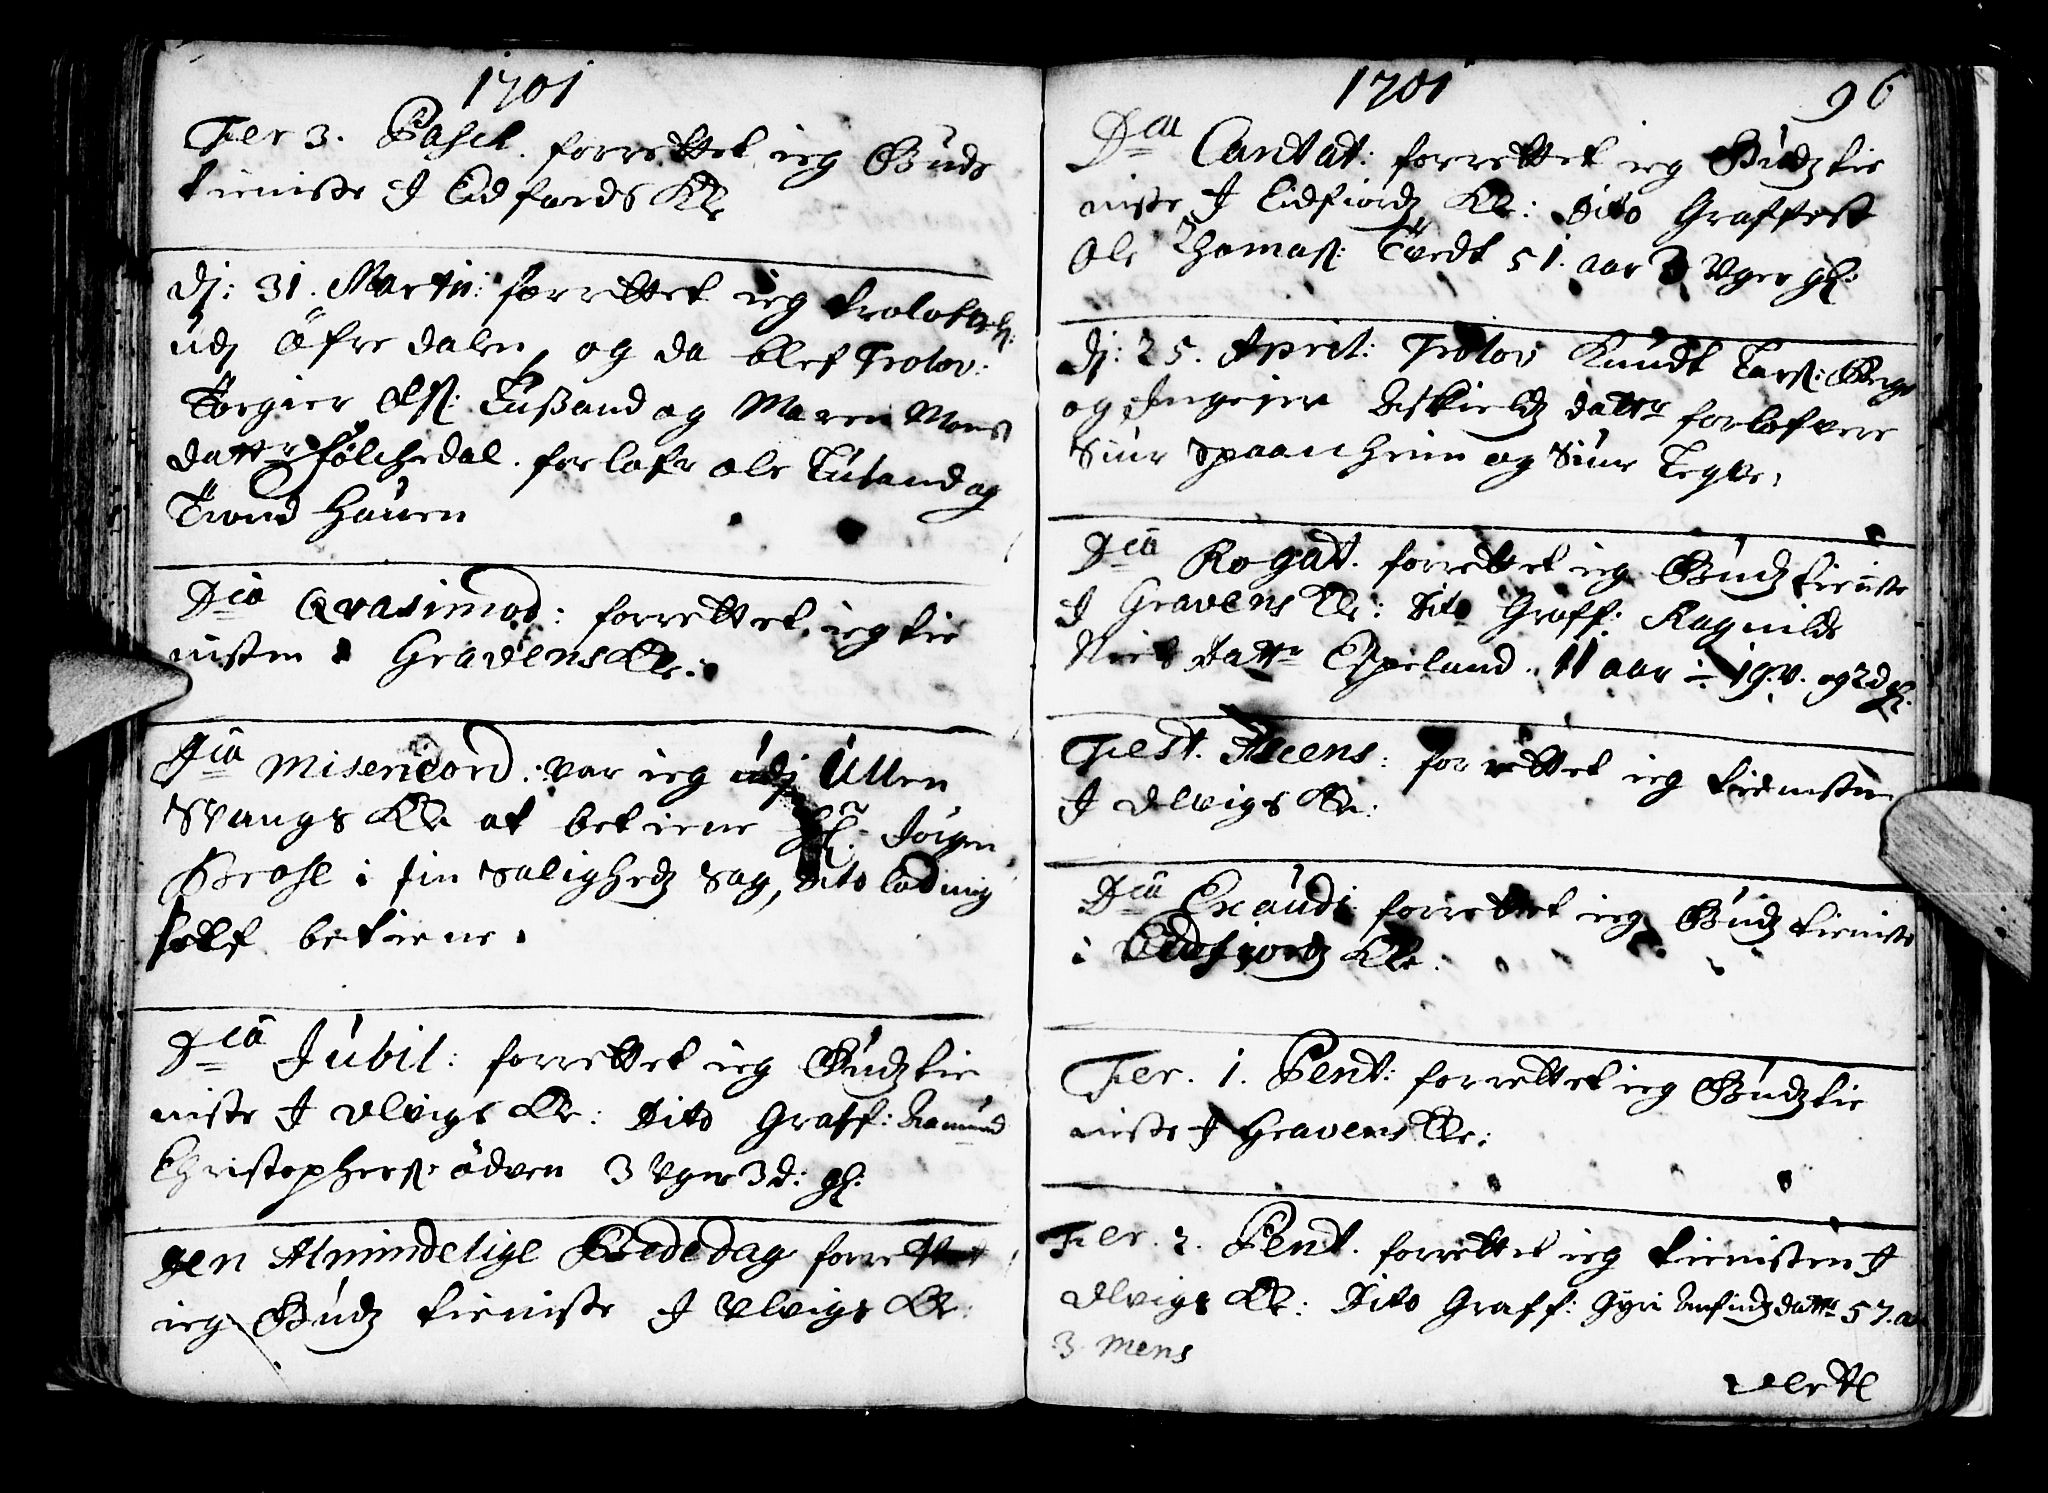 1701
Fer 3. Pasch. forrettet ieg Guds
tieniste J Eidfiords Kk
dj: 31. Martij: forrettet ieg trolofvelß:
udj Öfre dalen, og da blef Trolov:
Torgier Olß: Tußand og Maren Mons
dattr Fölchedal. forlofr Ole Tusand og
Trond Hauen
Dca Qvasimod: forrettet ieg tie
nisten i Gravens Kk:
Dca Misericord: var ieg udj Ullen
svangs Kk at betiene Hr. Jörgen
Grahl i sin Saligheds Sag, dito lod mig
self betiene.
Dca Jubil: forrettet ieg Gudz tie
niste J Vlvigs Kk: Dito Graff: Aamund
Christophersß: ödven 3 Vger 3 d: gl:
Den Almindelige Bededag forrettet
ieg Gudz tieniste J Vlvigs Kk:
1701
96
Dca Cantat: forrettet ieg Gudz tie
niste J Eidfiordz Kk: Dito Graffest
Ole Thomaß: Tvedt 51. aar 3 Vger gl:
dj: 25. April: Trolov Knudt Larß: Berge
og Ingejer Askieldz dattr forlofvere
Siur Spaanheim og Siur Legve.
Dca Rogat. forrettet ieg Gudz tieniste
J Gravens Kk: Dito Graff: Ragnilde
Niels Dattr Espeland. 11 aar ÷ 19. V. og 2 d gl.
Fest. Ascens: forrettet ieg tienisten
J Vlvigs Kk:
Dca Exaudi forrettet ieg Gudz tieniste
i Eidfiordz Kk.
Fer. 1. Pent: forrettet ieg Gudz tie
niste J Gravens Kk:
Fer. 2. Pent. forrettet ieg tienisten J
Vlvigs Kk: Dito Graff: Gyri Anfindz dattr 57. aar
3 Mens
Verte